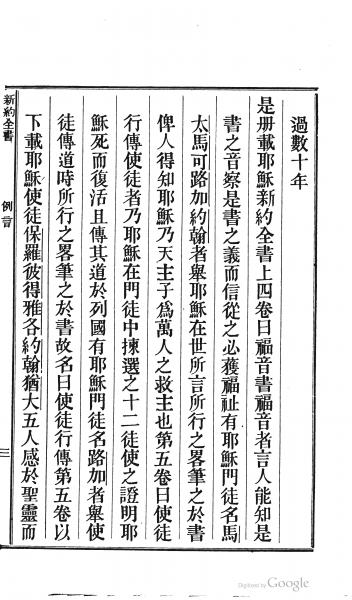 過數十年
是册載耶穌新約全書上四卷曰福音書福音者言人能知是
書之音察是書之義而信從之必獲福祉有耶穌門徒名馬
太馬可路加約翰者舉耶穌在世所言所行之畧筆之於書
俾人得知耶穌乃天主子爲萬人之救主也第五卷曰使徒
行傳使徒者乃耶穌在門徒中揀選之十二徒使之證明耶
穌死而復活且傳其道於列國有耶穌門徒名路加者舉使
徒傳道時所行之畧筆之於書故名曰使徒行傳第五卷以
下載耶穌使徒保羅彼得雅各約翰猶大五人感於聖靈而
新約全書 例言 三
Digitized by Google